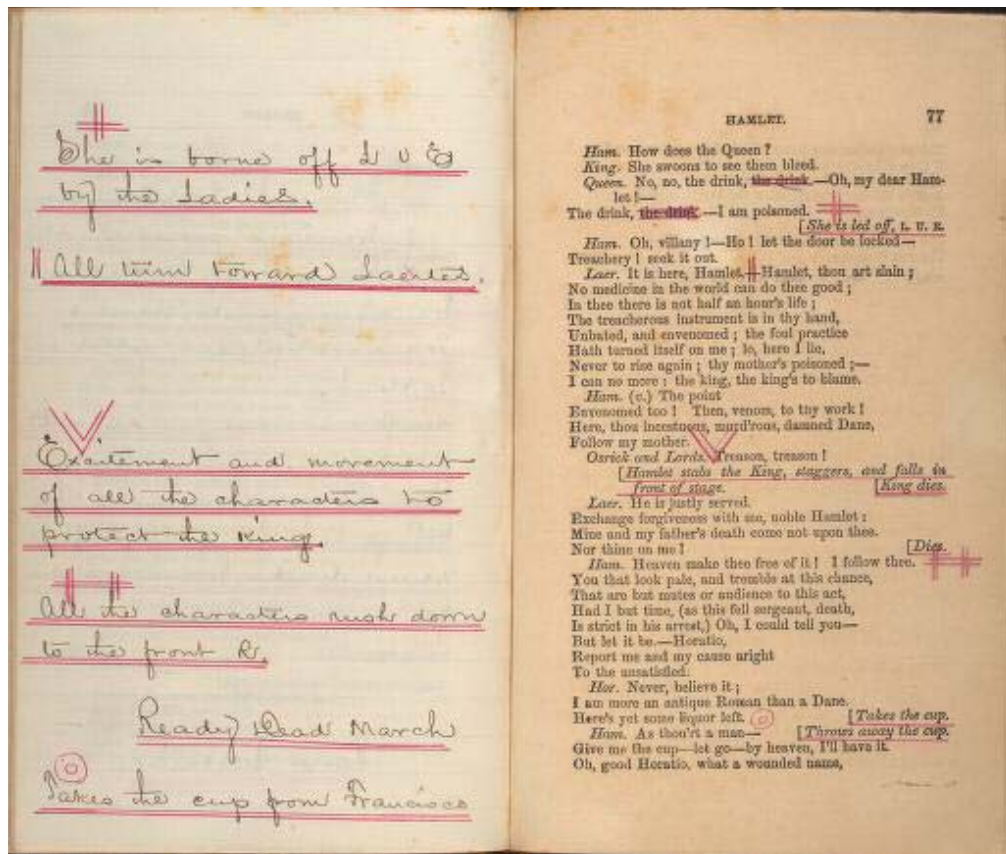 She is borne off L U E
by the Ladies.
All turn toward Laertes.
Excitement and movement
of all the characters to
protect the King.
All the characters rush down
to the front R.
Ready Dead March
Takes the cup from Francisco
HAMLET. 77
Ham. How does the Queen ?
King. She swoons to see them bleed.
Queen. No, no, the drink, the drink.—Oh, my dear Ham-
let !—
The drink, the drink,—I am poisoned.
[She is led off, L. U. E.
Ham. Oh, villany !—Ho ! let the door be locked—
Treachery ! seek it out.
Laer. It is here, Hamlet. Hamlet, thou art slain ;
No medicine in the world can do thee good ;
In thee there is not half an hour's life ;
The treacherous instrument is in thy hand,
Unbated, and envenomed ; the foul practice
Hath turned itself on me ; lo, here I lie,
Never to rise again ; thy mother's poisoned ;—
I can no more : the king, the king's to blame.
Ham. (C.) The point
Envenomed too ! Then, venom, to thy work !
Here, thou incestuous, murd'rous, damned Dane,
Follow my mother.
Osrick and Lords. Treason, treason !
[Hamlet stabs the King, staggers, and falls in
front of stage. [King dies.
Laer. He is justly served.
Exchange forgiveness with me, noble Hamlet :
Mine and my father's death come not upon thee.
Nor thine on me ! [Dies.
Ham. Heaven make thee free of it ! I follow thee.
You that look pale, and tremble at this chance,
That are but mutes or audience to this act,
Had I but time, (as this fell sergeant, death,
Is strict in his arrest,) Oh, I could tell you—
But let it be.—Horatio,
Report me and my cause aright
To the unsatisfied.
Hor. Never, believe it ;
I am more an antique Roman than a Dane.
Here's yet some liquor left. [Takes the cup.
Ham. As thou'rt a man— [Throws away the cup.
Give me the cup—let go—by heaven, I'll have it.
Oh, good Horatio, what a wounded name,